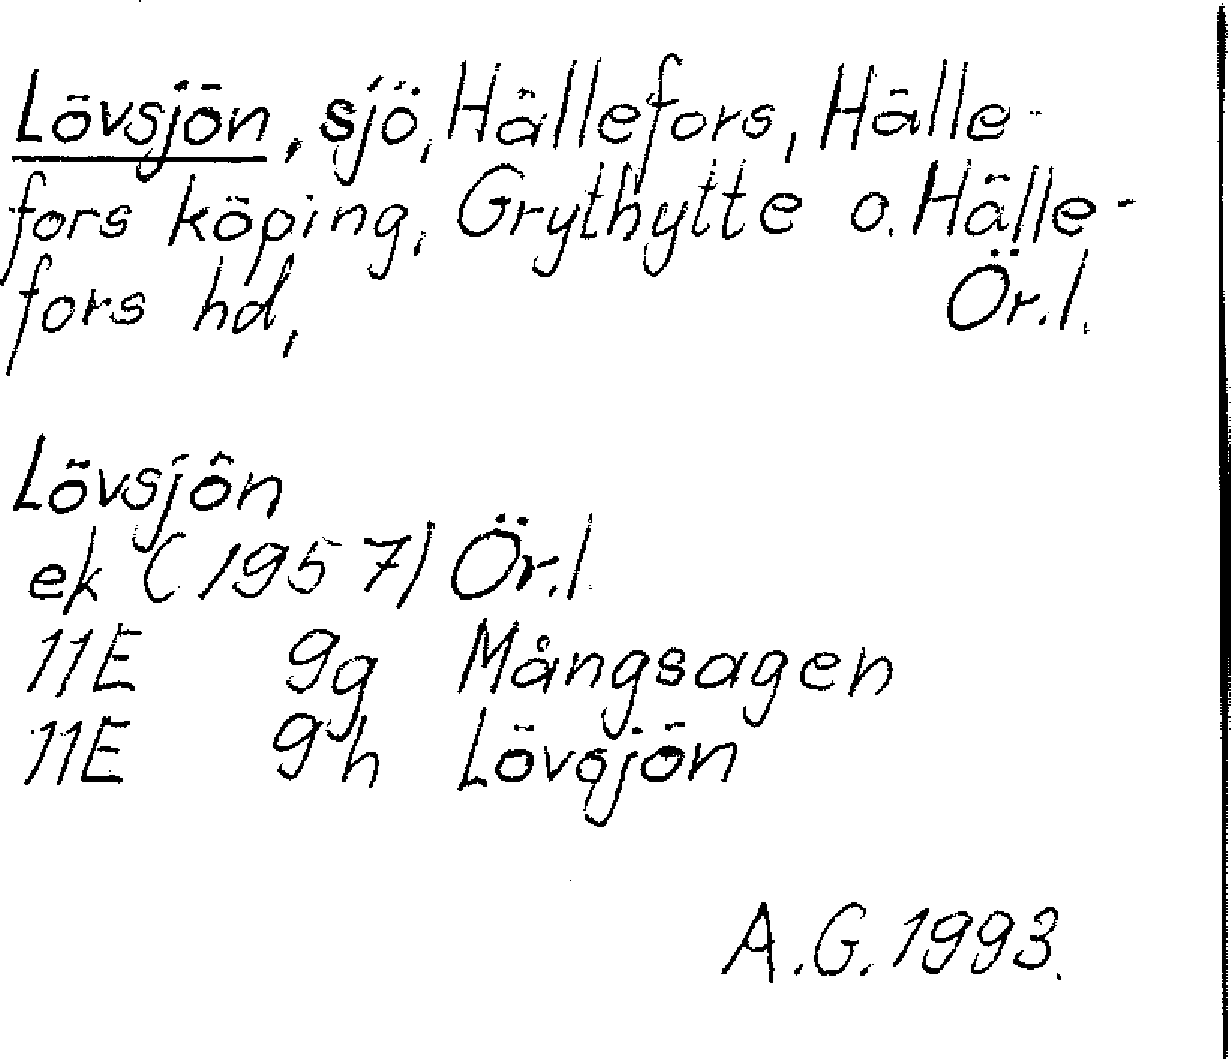 Lövsjön, sjö, Hällefors, Hälle-
fors köping, Grythytte o. Hälle-
fors hd, Ör.l.
Lövsjön
ek (1957) Ör.l.
11E 9g Mångsagen
11E 9h Lövsjön
A.G. 1993.